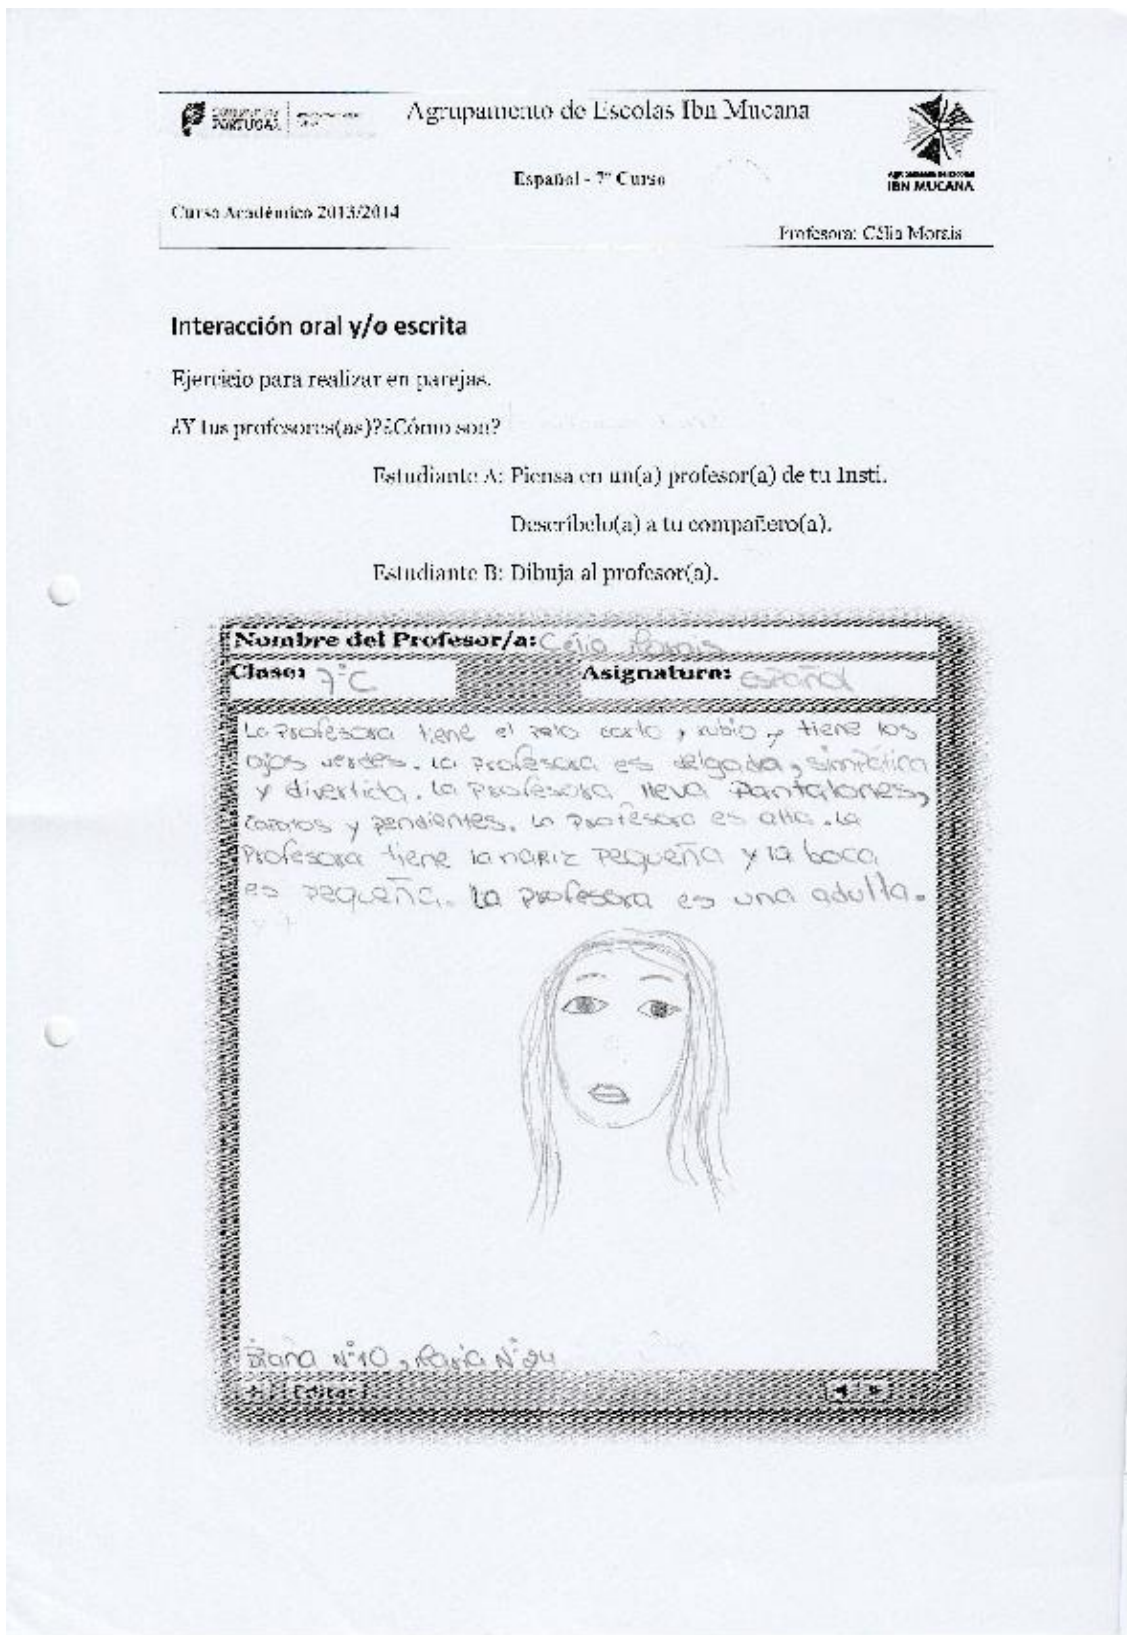 PORTUGAL
Agrupamento de Escolas Ibn Mucana
Español - 7º Curso
IBN MUCANA
Curso Académico 2013/2014
Profesora: Célia Morais
Interacción oral y/o escrita
Ejercicio para realizar en parejas.
¿Y tus profesores(as)?¿Cómo son?
Estudiante A: Piensa en un(a) profesor(a) de tu Insti.
Descríbelo(a) a tu compañero(a).
Estudiante B: Dibuja al profesor(a).
Nombre del Profesor/a: Célia Morais
Clase: 7ºC Asignatura: español
La Profesora tiene el pelo corto, rubio y tiene los
ojos verdes. La profesora es delgada, simpática
y divertida. La Profesora lleva Pantalones,
zapatos y pendientes. La profesora es alta. La
Profesora tiene la nariz pequeña y la boca
es pequeña. La profesora es una adulta.
Diana Nº10, Nº24
Editar